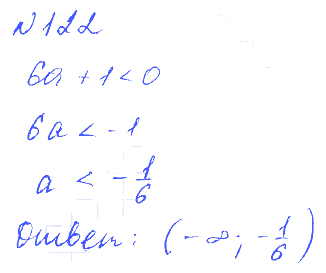 N 122
6a + 1 < 0
6a < -1
a < -1/6
Ответ: (-∞; -1/6)